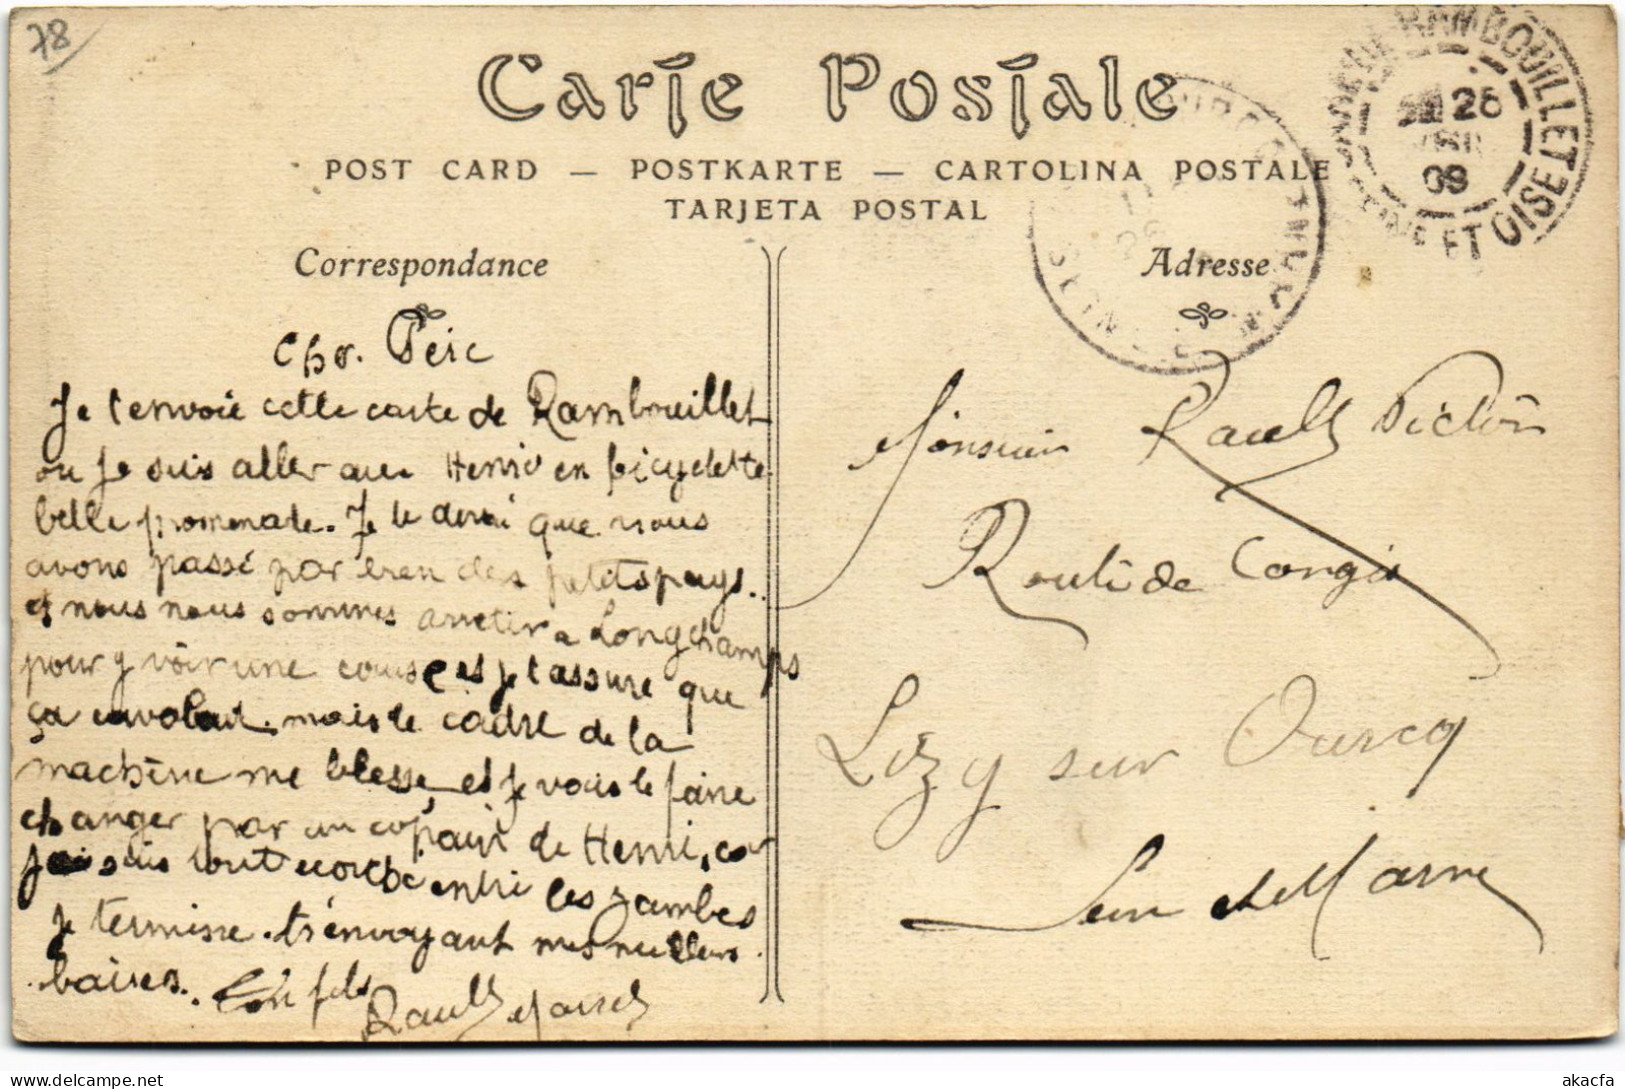 78
Carte Postale
POST CARD — POSTKARTE — CARTOLINA POSTALE
TARJETA POSTAL
Correspondance
Adresse
GARE DE RAMBOUILLET
SEINE ET OISE
26
09
Cher Père
Je t'envoie cette carte de Rambouillet
ou je suis aller avec Henri en bicyclette
belle promenade. Je te dirai que nous
avons passé par bien des petits pays.
et nous nous sommes arretir a Longchamps
pour y voir une course et je t'assure que
ça envolait. mais le cadre de la
machine me blesse et je vais le faire
changer par un copain de Henri, car
je suis tout écorché entre les jambes
Je termine. t'envoyant mes meilleurs
baises. Ton fils
Rault Marcel
Monsieur Rault Victor
Route de Congis
Lizy sur Ourcq
Seine et Marne
akacfa